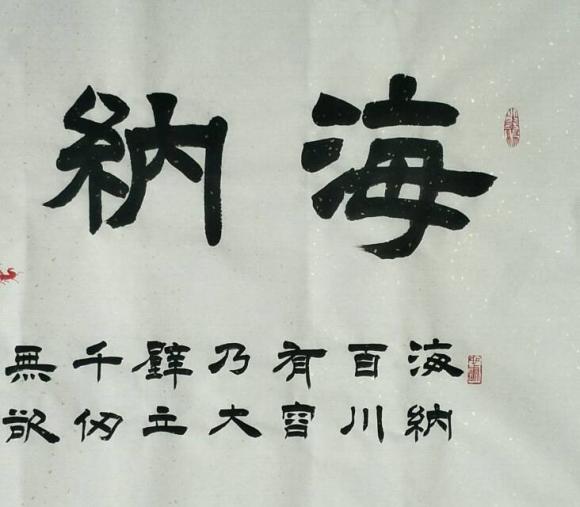 海納
海納
百川
有容
乃大
壁立
千仞
無欲